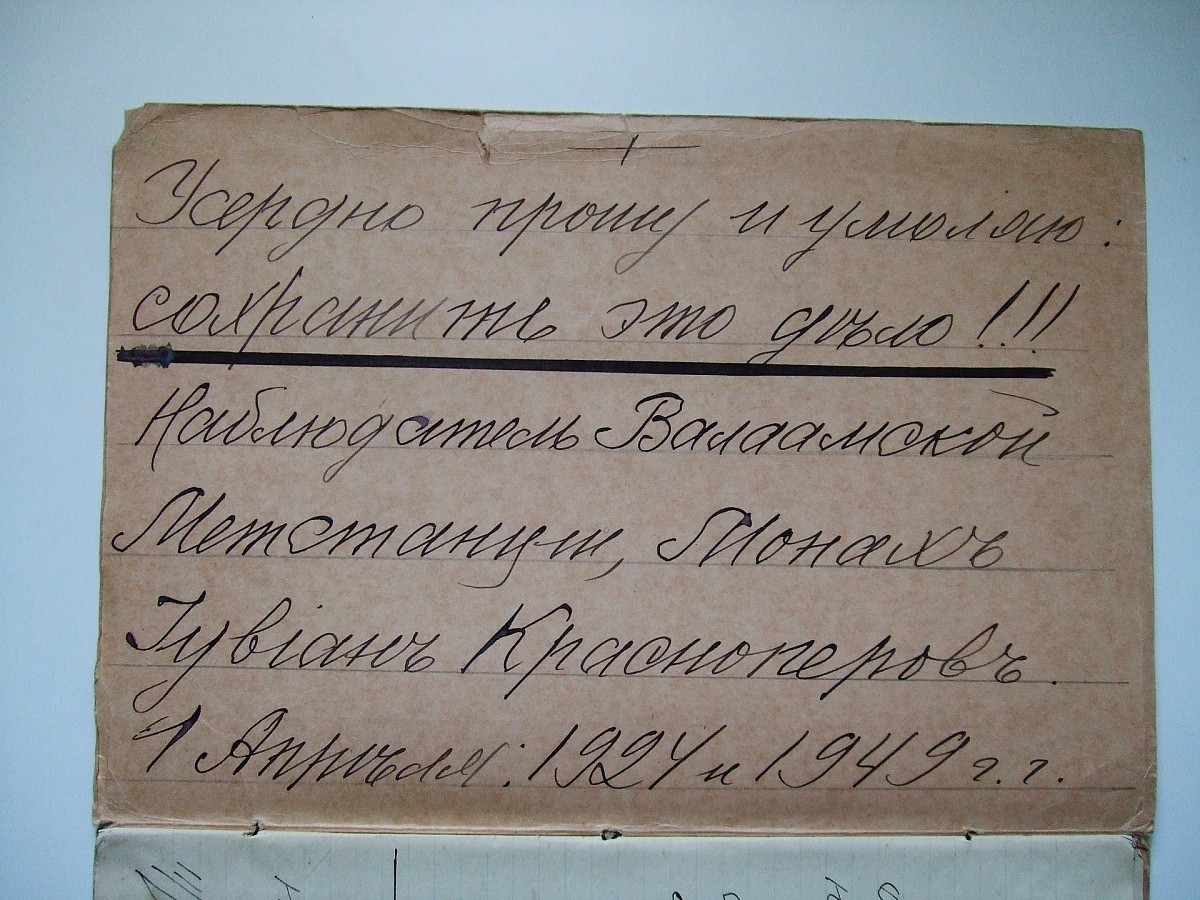 Усердно прошу и умоляю:
сохраните это дѣло!!!
Наблюдатель Валаамской
Метстанции, Монахъ
Іувіанъ Красноперовъ.
1 Апрѣля: 1924 и 1949 г.г.